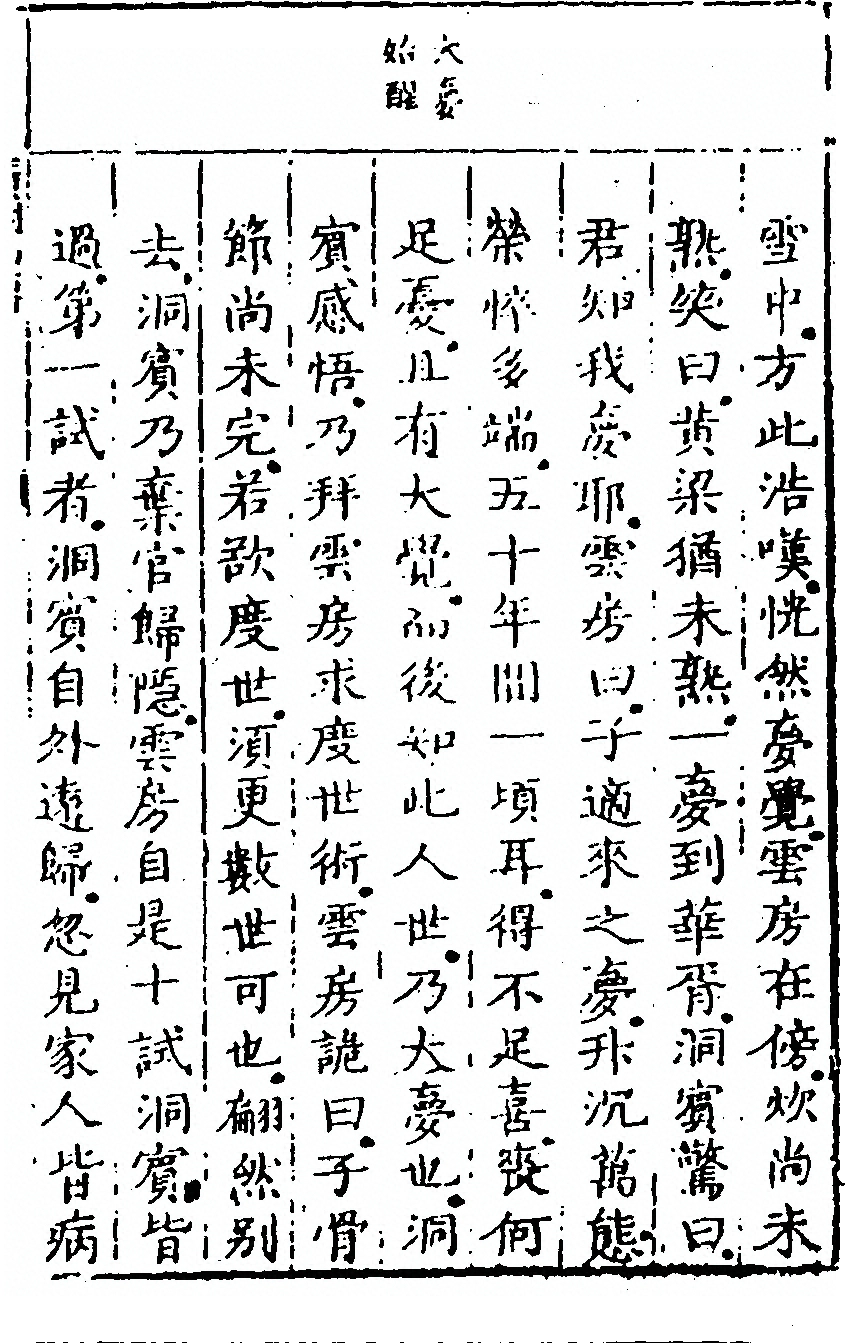 大夢
始醒
雪中。方此浩嘆。恍然夢覺。雲房在傍。炊尚未
熟。笑曰。黄梁猶未熟。一夢到華胥。洞賓驚曰。
君知我夢耶。雲房曰。子適來之夢。升沉萬態。
榮悴多端。五十年間一頃耳。得不足喜。喪何
足憂。且有大覺。而後知此人世。乃大夢也。洞
賓感悟。乃拜雲房求度世術。雲房詭曰。子骨
節尚未完。若欲度世。須更數世可也。翩然别
去。洞賓乃棄官歸隱。雲房自是十試洞賓。皆
過。第一試者。洞賓自外遠歸。忽見家人皆病